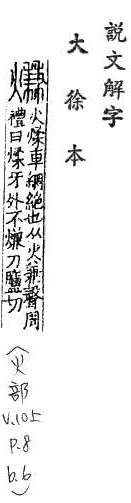 説文解字
大徐本
熑 火煣車網絕也从火兼聲周
禮曰煣牙外不熑力鹽切
(火部
v.10上
P.8
b.6)